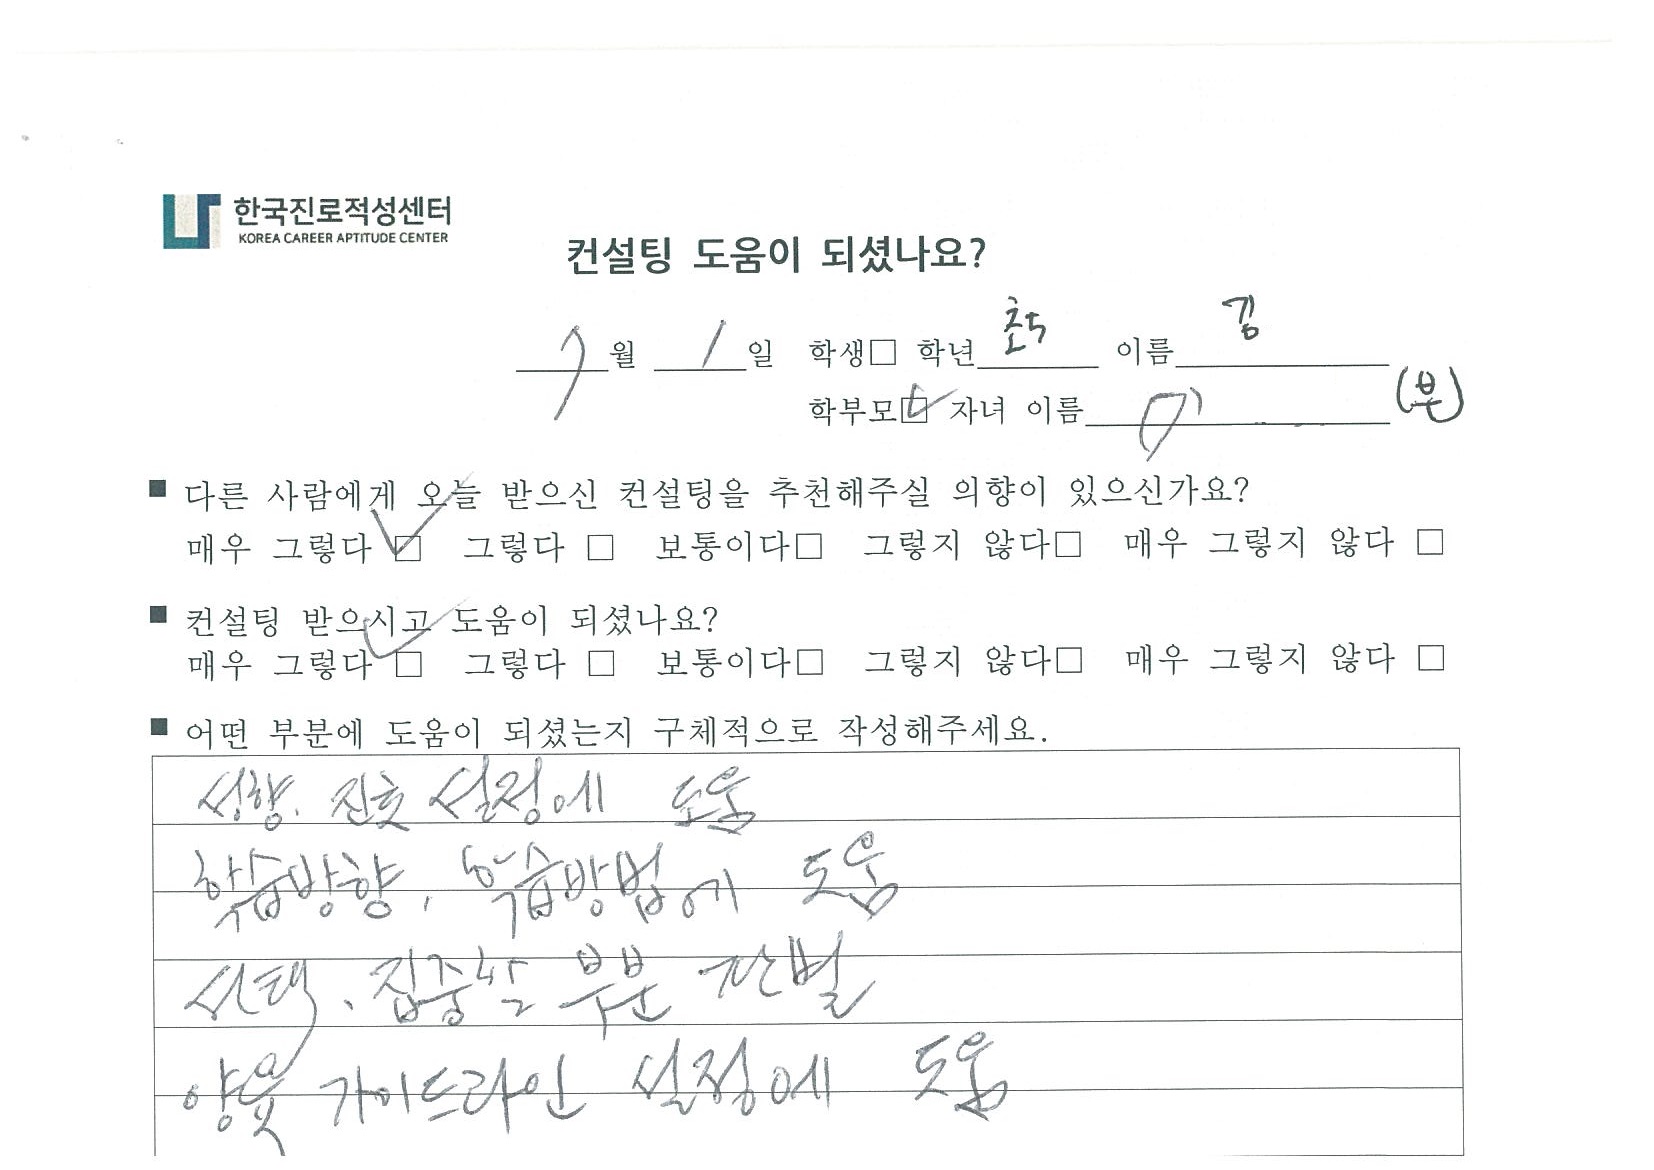 한국진로적성센터
KOREA CAREER APTITUDE CENTER
컨설팅 도움이 되셨나요?
7월 1일 학생□ 학년 초5 이름 김
학부모☑ 자녀 이름 (부)
■ 다른 사람에게 오늘 받으신 컨설팅을 추천해주실 의향이 있으신가요?
매우 그렇다 ☑ 그렇다 □ 보통이다□ 그렇지 않다□ 매우 그렇지 않다 □
■ 컨설팅 받으시고 도움이 되셨나요?
매우 그렇다 ☑ 그렇다 □ 보통이다□ 그렇지 않다□ 매우 그렇지 않다 □
■ 어떤 부분에 도움이 되셨는지 구체적으로 작성해주세요.
성향. 진로 설정에 도움
학습방향, 학습방법에 도움
선택, 집중할 부분 판별
양육 가이드라인 설정에 도움